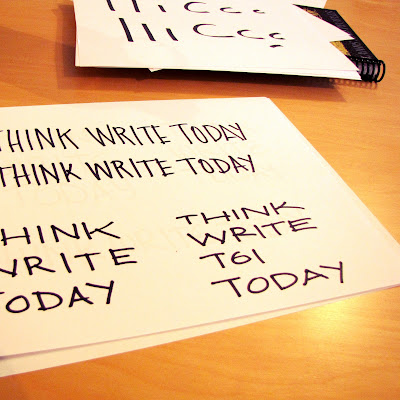 THINK WRITE TODAY
THINK WRITE TODAY
HINK
WRITE
TODAY
THINK
WRITE
T61
TODAY